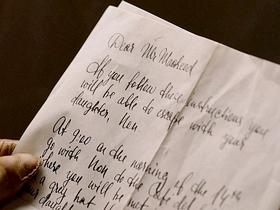 Dear Mr Muskead
If you follow these instructions you
will be able to escape with your
daughter, Nen
At 9.00 in the morning of the 14th
go with Nen to the Café
where you will be met
grey hat
daughter